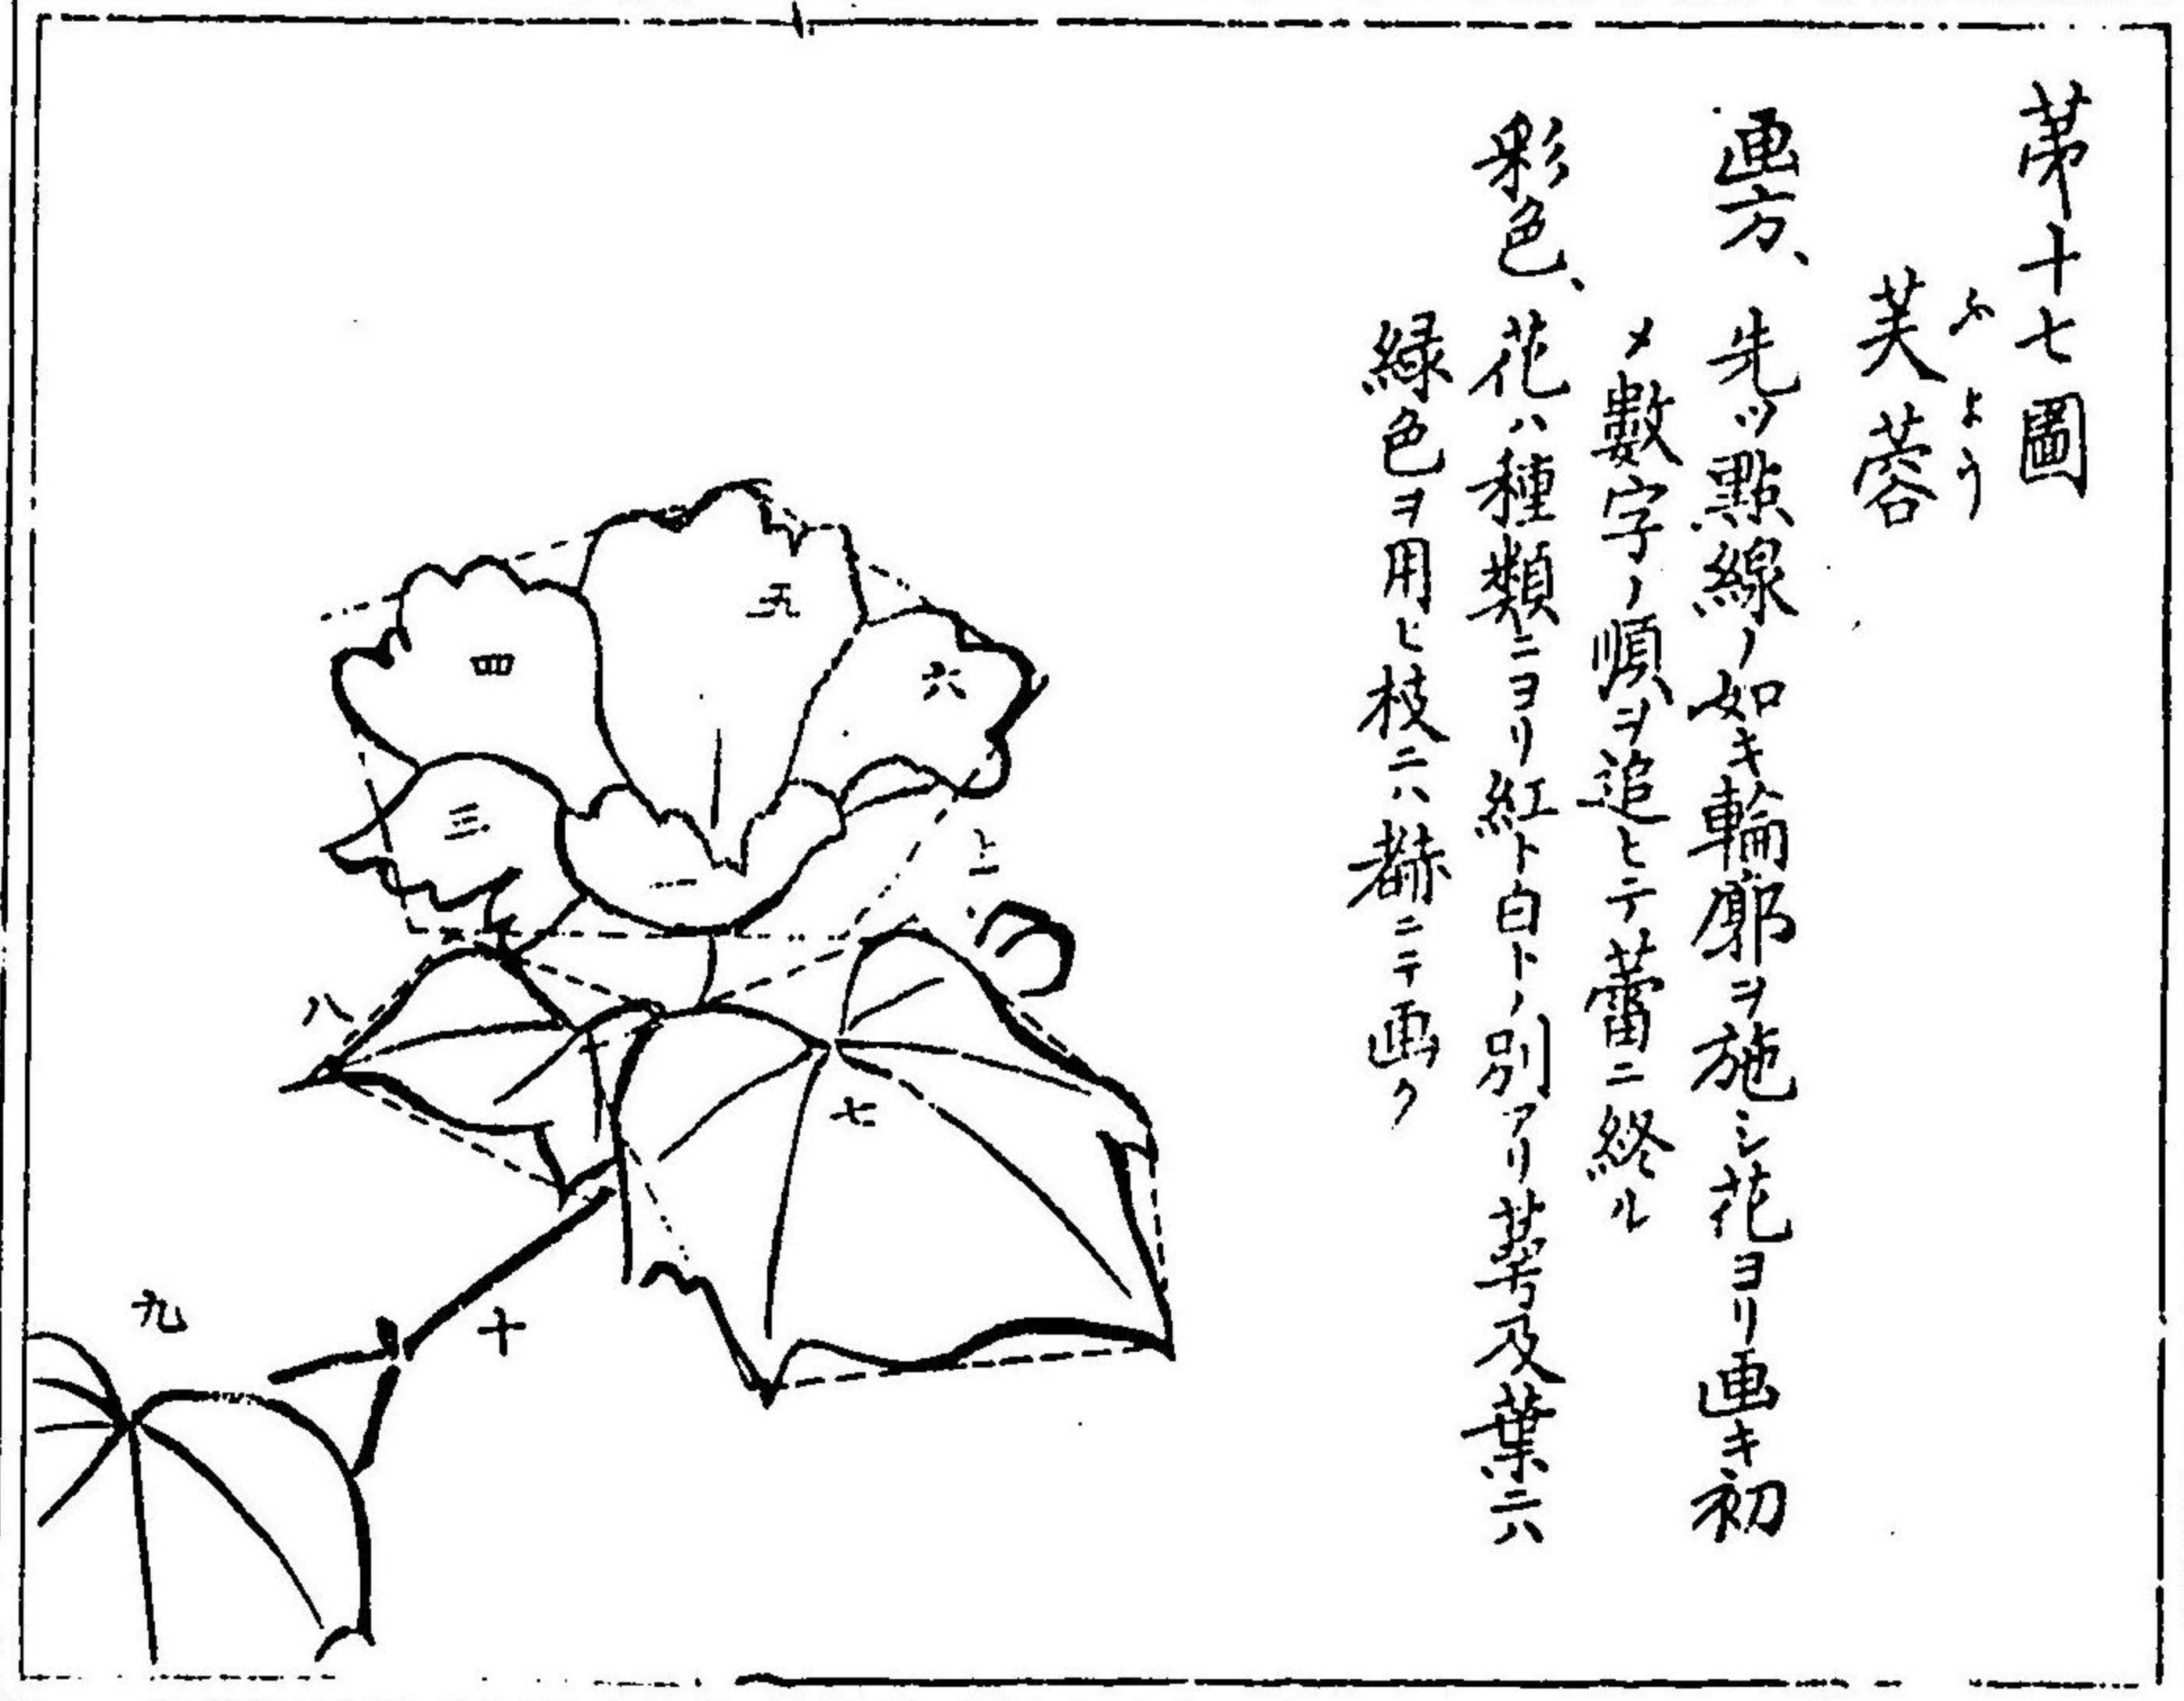 第十七圖
芙蓉
ふよう
画方、先ツ點線ノ如キ輪廓ヲ施シ花ヨリ画キ初
メ數字ノ順ヲ追ヒテ蕾ニ終ル
彩色、花ハ種類ニヨリ紅ト白トノ別アリ萼及葉ニハ
緑色ヲ用ヒ枝ニハ赭ニテ画ク
五
四
六
三
一
二
八
七
九
十